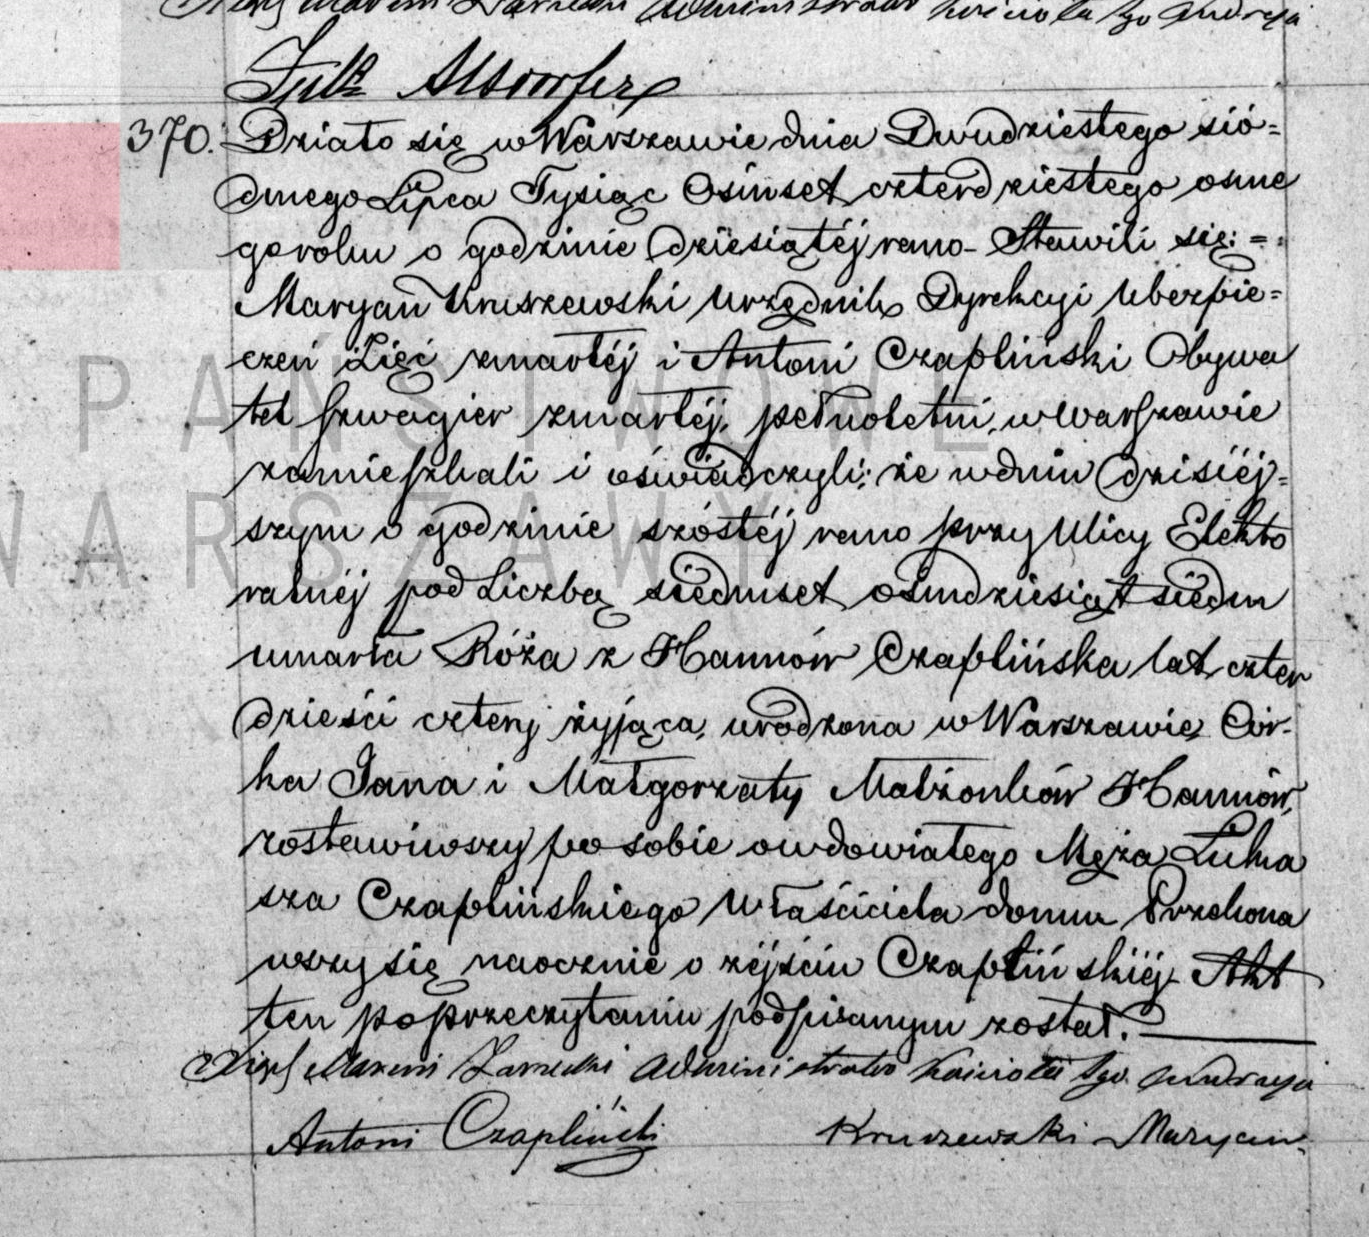 Administrator Kościoła Sgo Andrzeja
370. Działo się w Warszawie dnia Dwudziestego sió=
dmego Lipca Tysiąc Ośmset czterdziestego osme
go roku o godzinie dziesiątéj rano - Stawili się: =
Maryan Kruszewski Urzędnik Dyrekcyi Ubezpie=
czeń Zięć zmarłéj i Antoni Czapliński Obywa
tel szwagier zmarłéj, pełnoletni, w Warszawie
zamieszkali i oświadczyli; że w dniu dzisiéj=
szym o godzinie szóstéj rano przy Ulicy Elekto
ralnéj pod Liczbą siedmset ośmdziesiąt siedm
umarła Róża z Hannów Czaplińska lat czter
dzieści cztery żyjąca, urodzona w Warszawie, Cór-
ka Jana i Małgorzaty Małżonków Hannów,
zostawiwszy po sobie owdowiałego Męża Luka
sza Czaplińskiego Właściciela domu Przekona
wszy się naocznie o zéjściu Czaplińskiéj Akt
ten po przeczytaniu podpisanym został.
Administrator Kościoła Sgo Andrzeja
Antoni Czapliński Kruszewski Maryan
PAŃSTWOWE
WARSZAWY